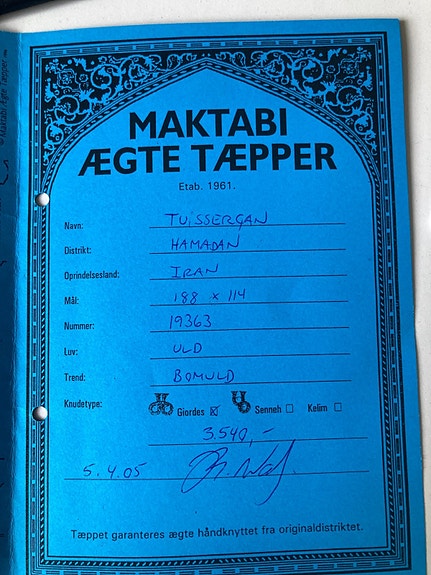 © Maktabi Ægte Tæpper
MAKTABI
ÆGTE TÆPPER
Etab. 1961.
Navn: TUISSERGAN
Distrikt: HAMADAN
Oprindelsesland: IRAN
Mål: 188 x 114
Nummer: 19363
Luv: ULD
Trend: BOMULD
Knudetype: Giordes ☒ Senneh ☐ Kelim ☐
3.540,-
5.4.05
Tæppet garanteres ægte håndknyttet fra originaldistriktet.